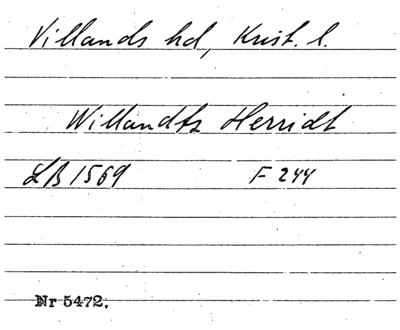 Villands hd, Krist. l.
Willandtz Herridt
LB 1569 F 244
Nr 5472.